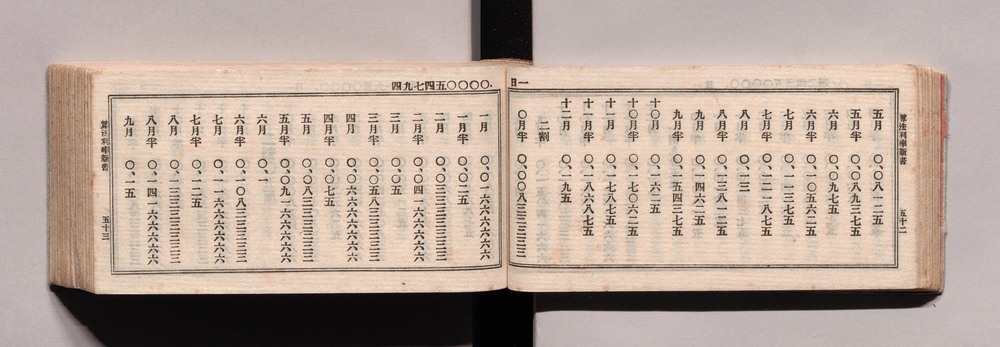 一日
算法利率新書
五十二
五月 〇、〇八一二五
五月半 〇、〇八九三七五
六月 〇、〇九七五
六月半 〇、一〇五六二五
七月 〇、一一三七五
七月半 〇、一二一八七五
八月 〇、一三
八月半 〇、一三八一二五
九月 〇、一四六二五
九月半 〇、一五四三七五
十〇月 〇、一六二五
十〇月半 〇、一七〇六二五
十一月 〇、一七八七五
十一月半 〇、一八六八七五
十二月 〇、一九五
二割
〇月半 〇、〇〇八三三三三三
.〇〇〇〇五四七九四
一月 〇、〇一六六六六六六
一月半 〇、〇二五
二月 〇、〇三三三三三三三
二月半 〇、〇四一六六六六六
三月 〇、〇五
三月半 〇、〇五八三三三三三
四月 〇、〇六六六六六六六
四月半 〇、〇七五
五月 〇、〇八三三三三三三
五月半 〇、〇九一六六六六六
六月 〇、一
六月半 〇、一〇八三三三三三
七月 〇、一一六六六六六六
七月半 〇、一二五
八月 〇、一三三三三三三三
八月半 〇、一四一六六六六六
九月 〇、一五
算法利率新書
五十三